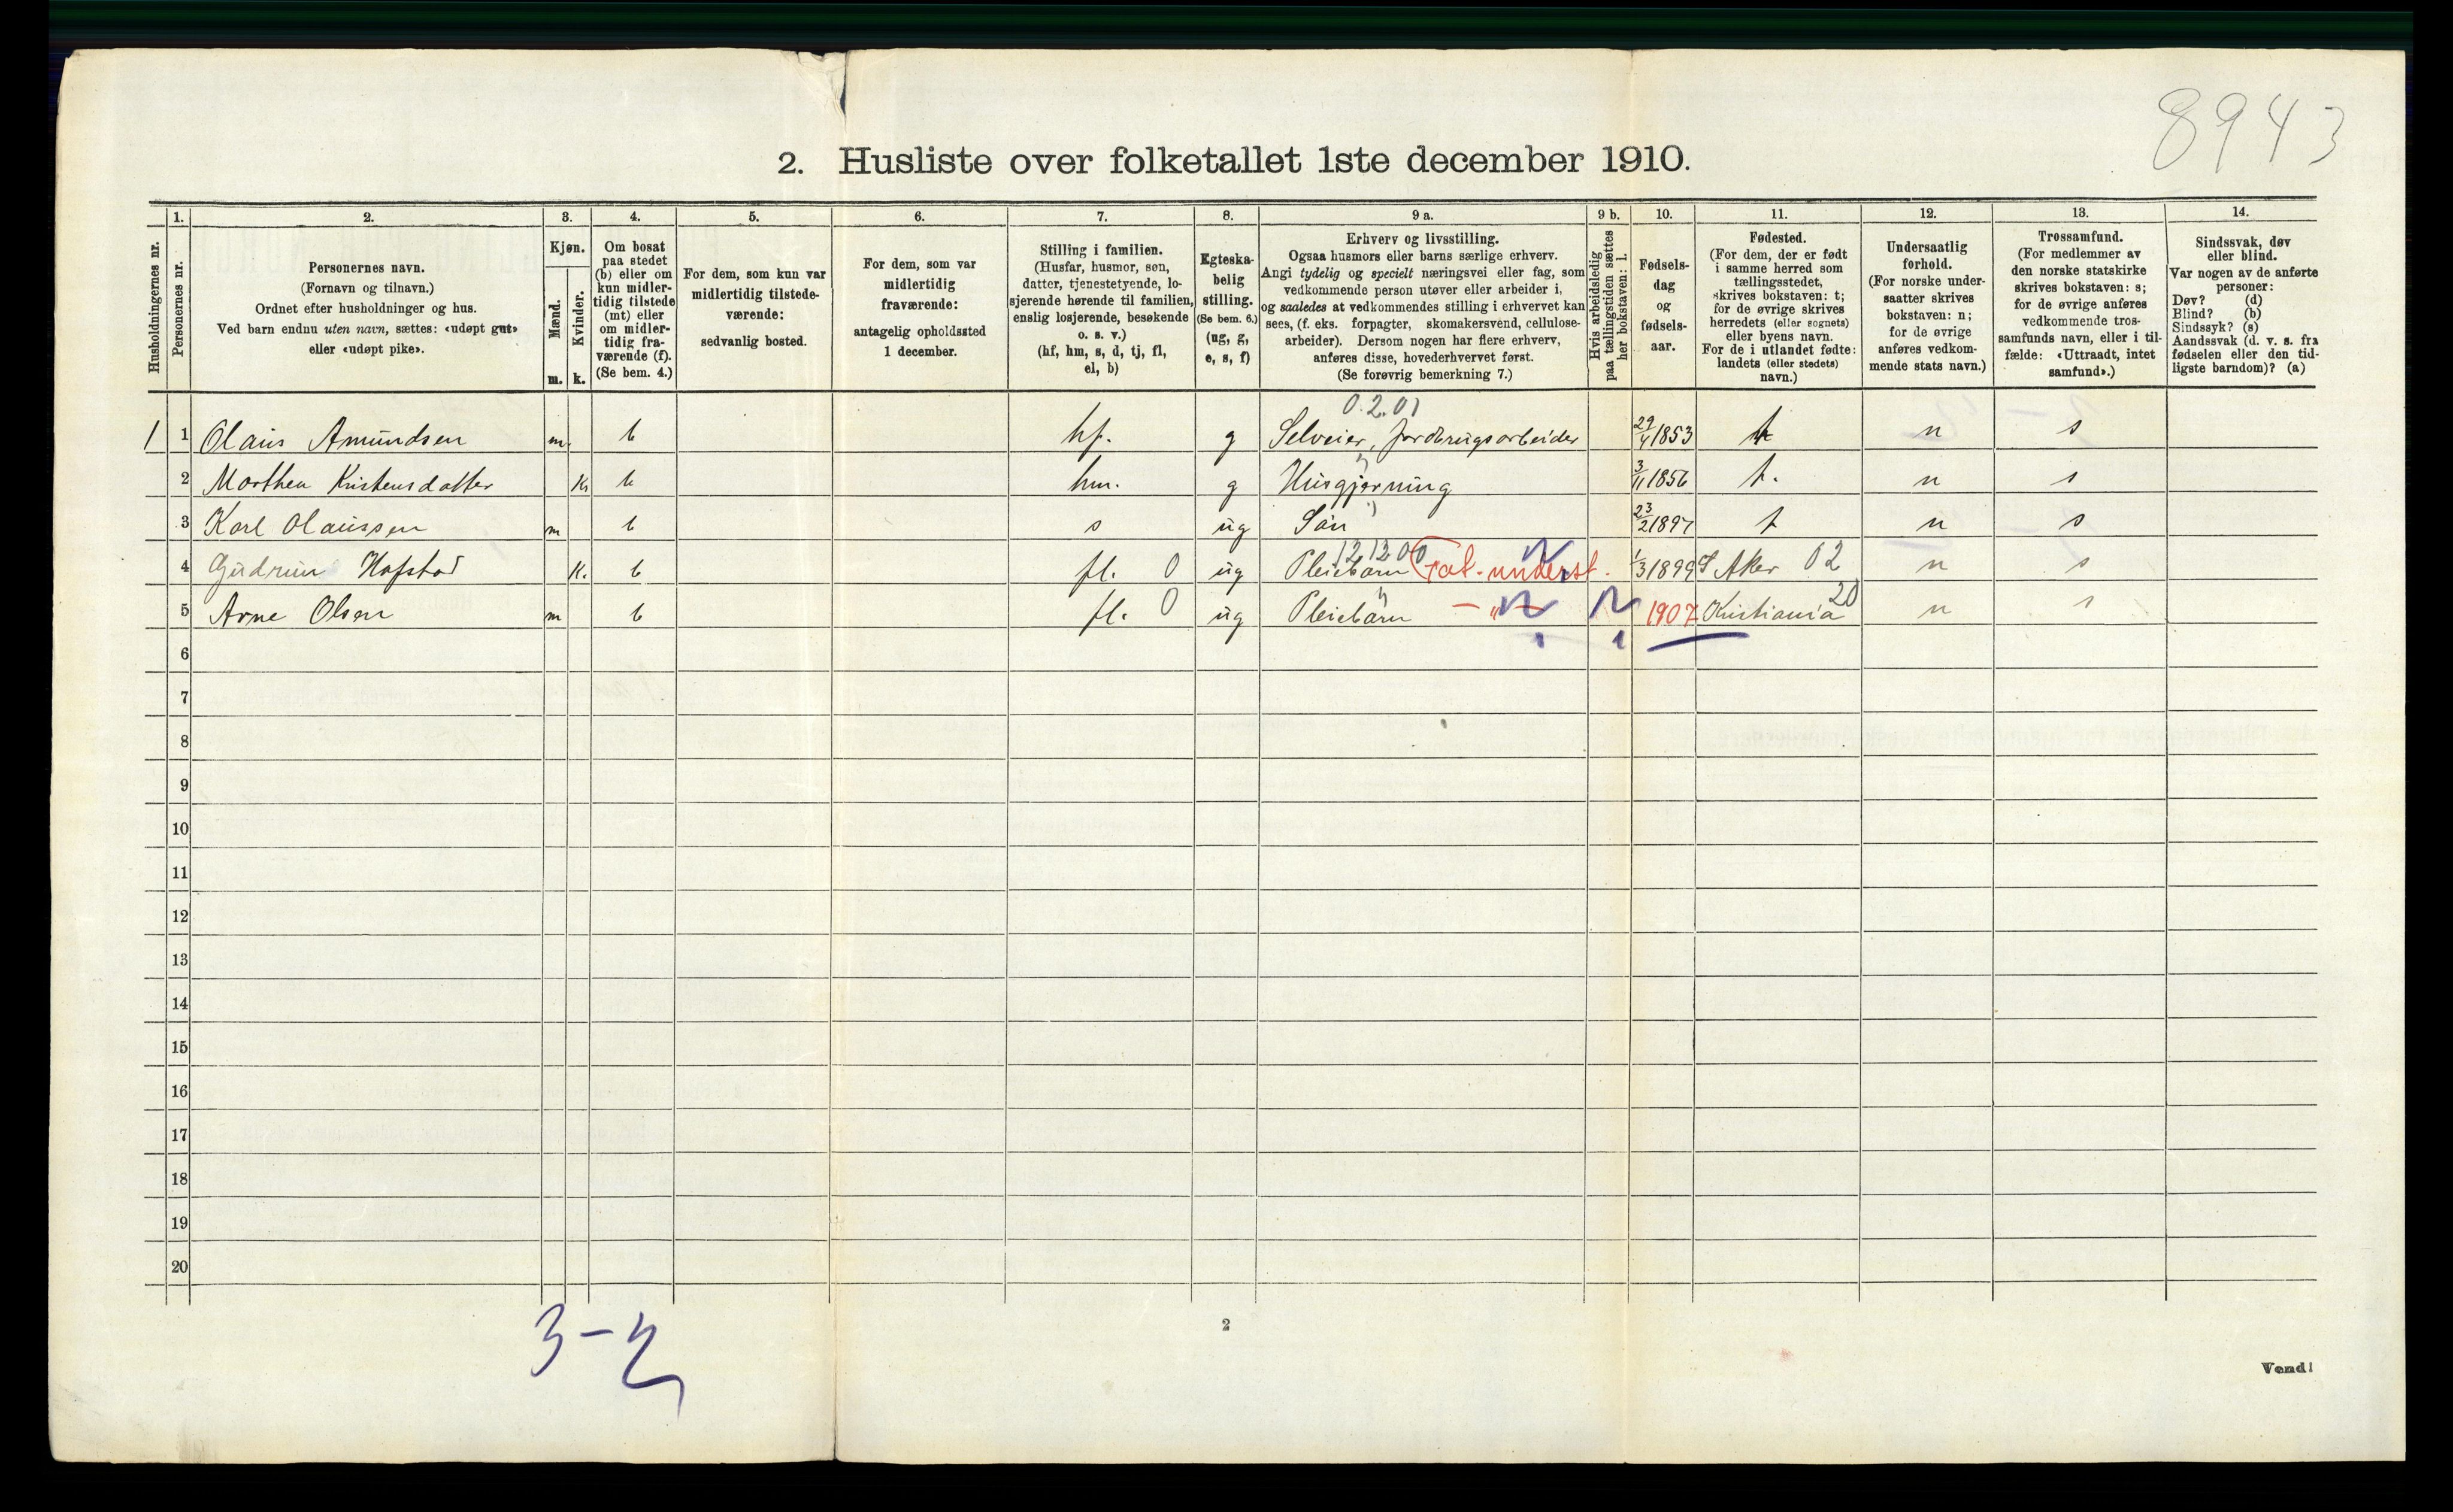 8943
2. Husliste over folketallet 1ste december 1910.
Husholdningernes nr.
1. Personernes nr.
2. Personernes navn. (Fornavn og tilnavn.) Ordnet efter husholdninger og hus. Ved barn endnu uten navn, sættes: «udøpt gut» eller «udøpt pike».
3. Kjøn. Mænd. m. Kvinder. k.
4. Om bosat paa stedet (b) eller om kun midlertidig tilstede (mt) eller om midlertidig fraværende (f). (Se bem. 4.)
5. For dem, som kun var midlertidig tilstedeværende: sedvanlig bosted.
6. For dem, som var midlertidig fraværende: antagelig opholdssted 1 december.
7. Stilling i familien. (Husfar, husmor, søn, datter, tjenestetyende, losjerende hørende til familien, enslig losjerende, besøkende o. s. v.) (hf, hm, s, d, tj, fl, el, b)
8. Egteskabelig stilling. (Se bem. 6.) (ug, g, e, s, f)
9 a. Erhverv og livsstilling. Ogsaa husmors eller barns særlige erhverv. Angi tydelig og specielt næringsvei eller fag, som vedkommende person utøver eller arbeider i, og saaledes at vedkommendes stilling i erhvervet kan sees, (f. eks. forpagter, skomakersvend, cellulosearbeider). Dersom nogen har flere erhverv, anføres disse, hovederhvervet først. (Se forøvrig bemerkning 7.)
9 b. Hvis arbeidsledig paa tællingstiden sættes her bokstaven: l.
10. Fødselsdag og fødselsaar.
11. Fødested. (For dem, der er født i samme herred som tællingsstedet, skrives bokstaven: t; for de øvrige skrives herredets (eller sognets) eller byens navn. For de i utlandet fødte: landets (eller stedets) navn.)
12. Undersaatlig forhold. (For norske undersaatter skrives bokstaven: n; for de øvrige anføres vedkommende stats navn.)
13. Trossamfund. (For medlemmer av den norske statskirke skrives bokstaven: s; for de øvrige anføres vedkommende trossamfunds navn, eller i tilfælde: «Uttraadt, intet samfund».)
14. Sindssvak, døv eller blind. Var nogen av de anførte personer: Døv? (d) Blind? (b) Sindssyk? (s) Aandssvak (d. v. s. fra fødselen eller den tidligste barndom)? (a)
0.2.01
1 1 Olaus Amundsen m. b hf. g Selveier, jordbrugsarbeider 29/4 1853 t n s
2 Marthea Kristensdatter k b hm. g Husgjerning 3/11 1856 t. n s
3 Karl Olaussen m b s ug Søn 23/2 1897 t n s
4 Gudrun Hafstad k. b fl. 0 ug Pleiebarn Fat.-underst. 1/3 1899 Aker 02 n s
5 Arne Olsen m b fl. 0 ug Pleiebarn — " — 1907 Kristiania 20 n s
6
7
8
9
10
11
12
13
14
15
16
17
18
19
20
3-2
2
Vend!